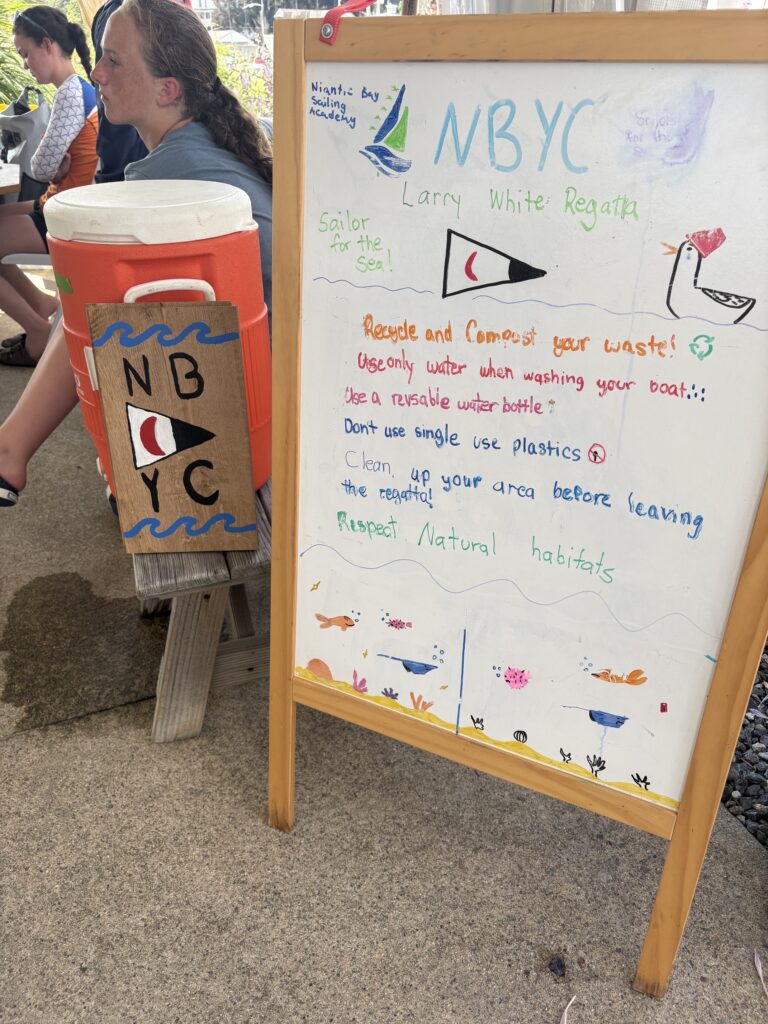 Niantic Bay
Sailing
Academy
NBYC
Sailors
for the
Larry White Regatta
Sailor
for the
Sea!
Recycle and Compost your waste!
Use only water when washing your boat
Use a reusable water bottle
Don't use single use plastics
Clean up your area before leaving
the regatta!
Respect Natural habitats
NB
YC